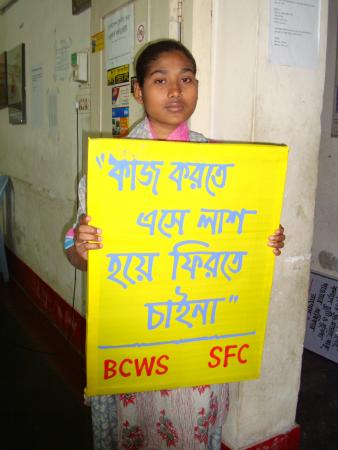 "কাজ করতে
এসে লাশ
হয়ে ফিরতে
চাইনা"
BCWS SFC